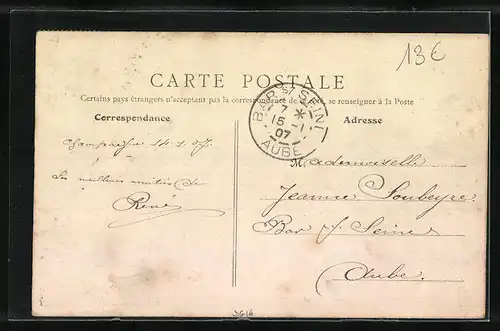 13€
CARTE POSTALE
Certains pays étrangers n'acceptent pas la correspondance de se renseigner à la Poste
BAR S/ SEINE
7 *
15 -1
07
AUBE
Correspondance
14-1-07
Les meilleures amitiés de
René
Adresse
Mademoiselle
Jeanne Soubeyre
Bar s/ Seine
Aube.